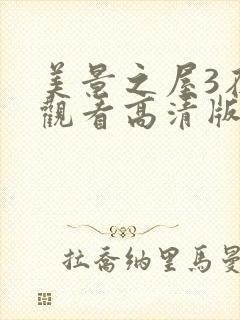 美景之屋3在
觀看高清版
拉喬納里馬曼